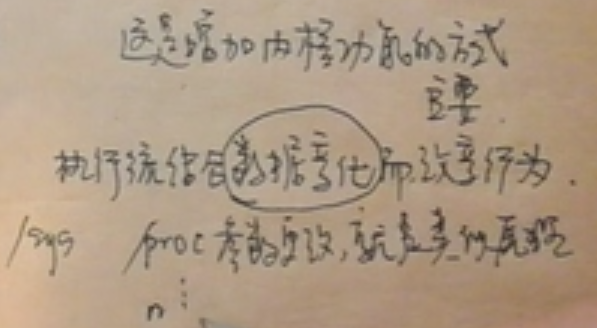 这是增加内核功能的方式
主要.
执行流结合数据变化而改变行为.
/sys /proc 参数更改,就是类似原理
n